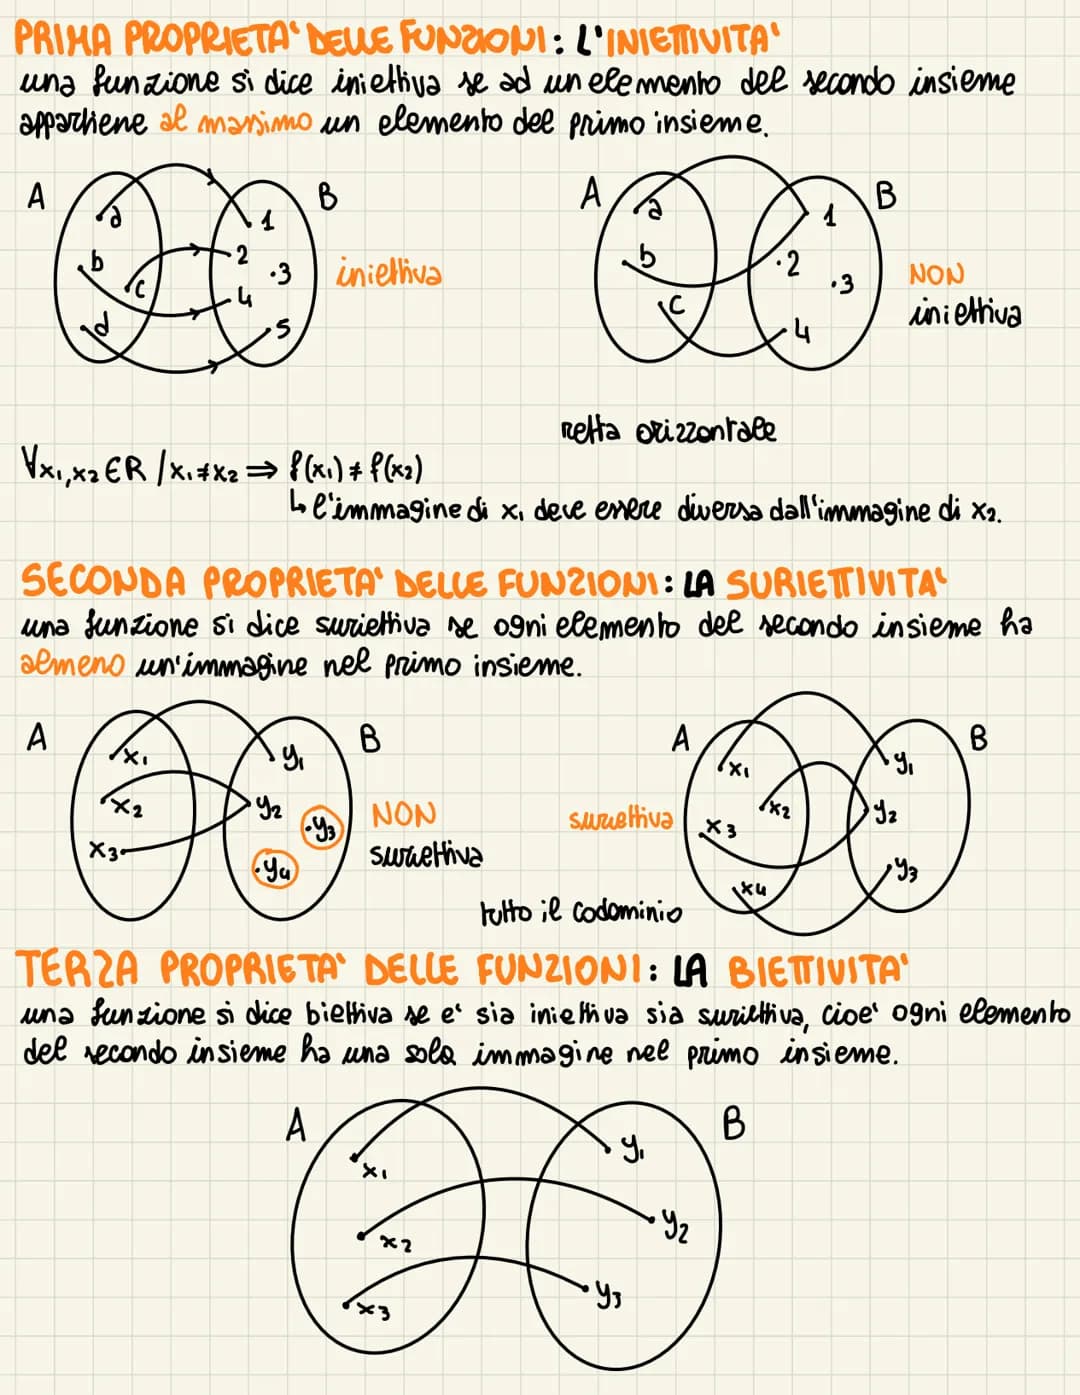 PRIMA PROPRIETA' DELLE FUNZIONI: L'INIETTIVITA'
una funzione si dice iniettiva se ad un elemento del secondo insieme
appartiene al massimo un elemento del primo insieme.
A B A B
a 1 a 1
b 2 b 2
c 3 iniettiva c 3 NON
d 4 4 iniettiva
5
retta orizzontale
∀x₁,x₂ ∈ R / x₁≠x₂ ⇒ f(x₁) ≠ f(x₂)
↳ l'immagine di x₁ deve essere diversa dall'immagine di x₂.
SECONDA PROPRIETA' DELLE FUNZIONI: LA SURIETTIVITA'
una funzione si dice suriettiva se ogni elemento del secondo insieme ha
almeno un'immagine nel primo insieme.
A B A B
x₁ y₁ x₁ y₁
x₂ y₂ y₃ NON suriettiva x₂ y₂
x₃ y₄ suriettiva x₃ y₃
x₄
tutto il codominio
TERZA PROPRIETA' DELLE FUNZIONI: LA BIETTIVITA'
una funzione si dice biettiva se e' sia iniettiva sia suriettiva, cioe' ogni elemento
del secondo insieme ha una sola immagine nel primo insieme.
A B
x₁ y₁
x₂ y₂
x₃ y₃